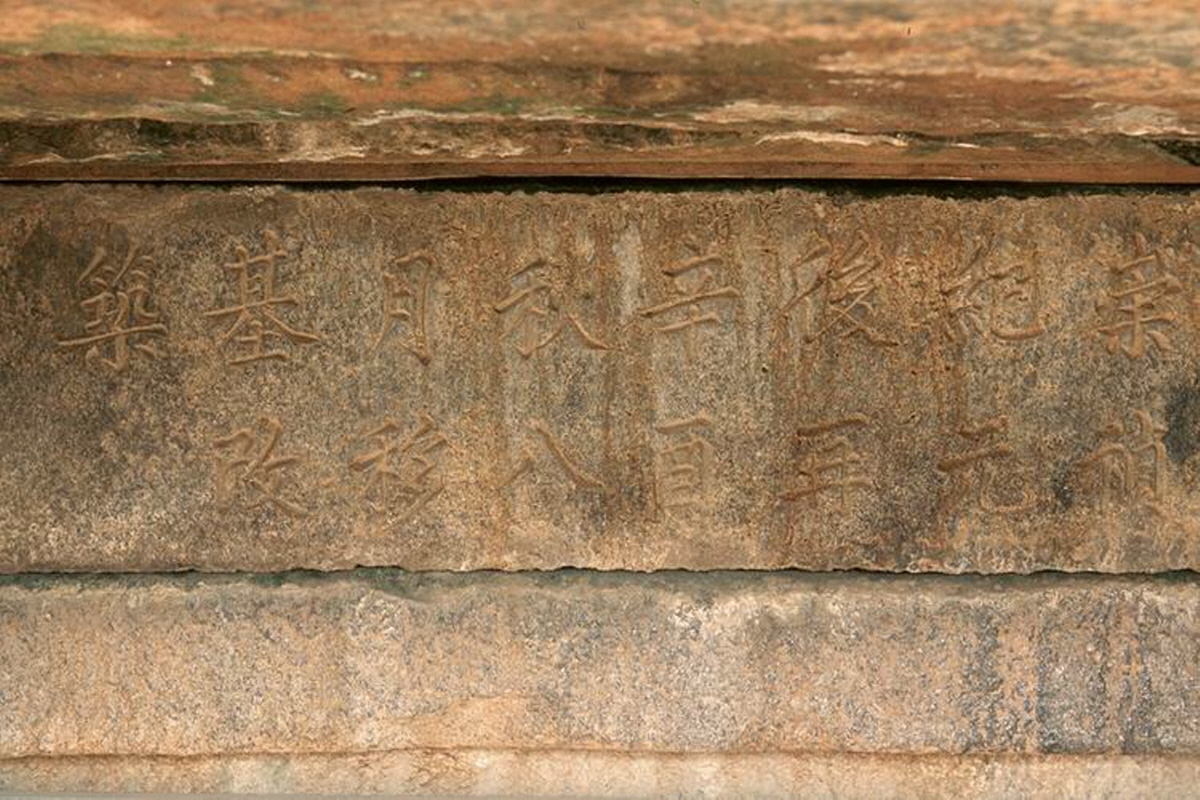 崇禎
紀元
後再
辛酉
秋八
月移
基改
築